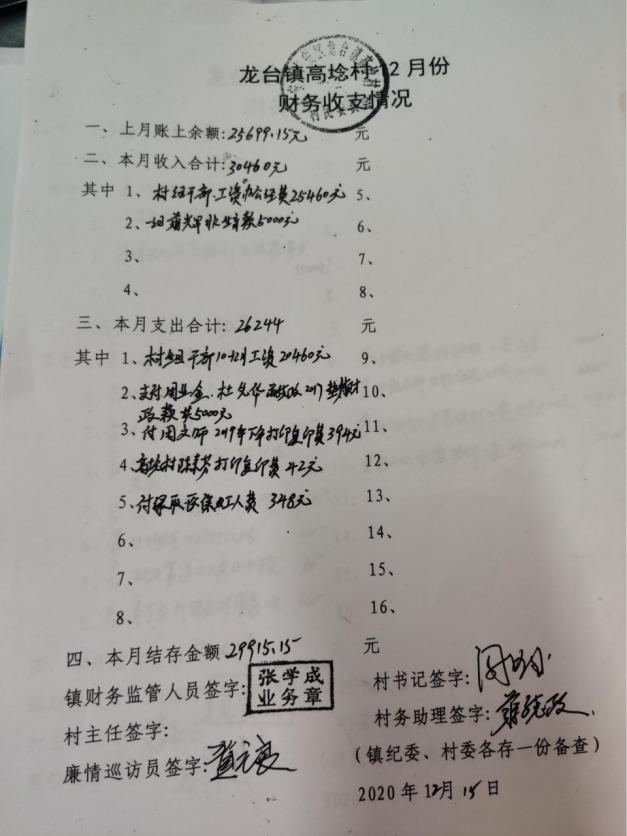 龙台镇高埝村12月份
财务收支情况
一、上月账上余额:25699.15元 元
二、本月收入合计:30460元 元
其中 1、村组干部工资办公经费25460元 5、
2、一组 5000元 6、
3、 7、
4、 8、
三、本月支出合计:26244 元
其中 1、村组干部10-12月工资20460元 9、
2、支付周 金、杜 华 2017 财 10、
政款共5000元
3、付周文师2019年下年打印复印费394元 11、
4、高埝村 打印复印费42元 12、
5、付 医保 人费 348元 13、
6、 14、
7、 15、
8、 16、
四、本月结存金额29915.15 元
镇财务监管人员签字: 张学成
业务章
村书记签字:
村主任签字:
村务助理签字:
廉情巡访员签字:
(镇纪委、村委各存一份备查)
2020年12月15日